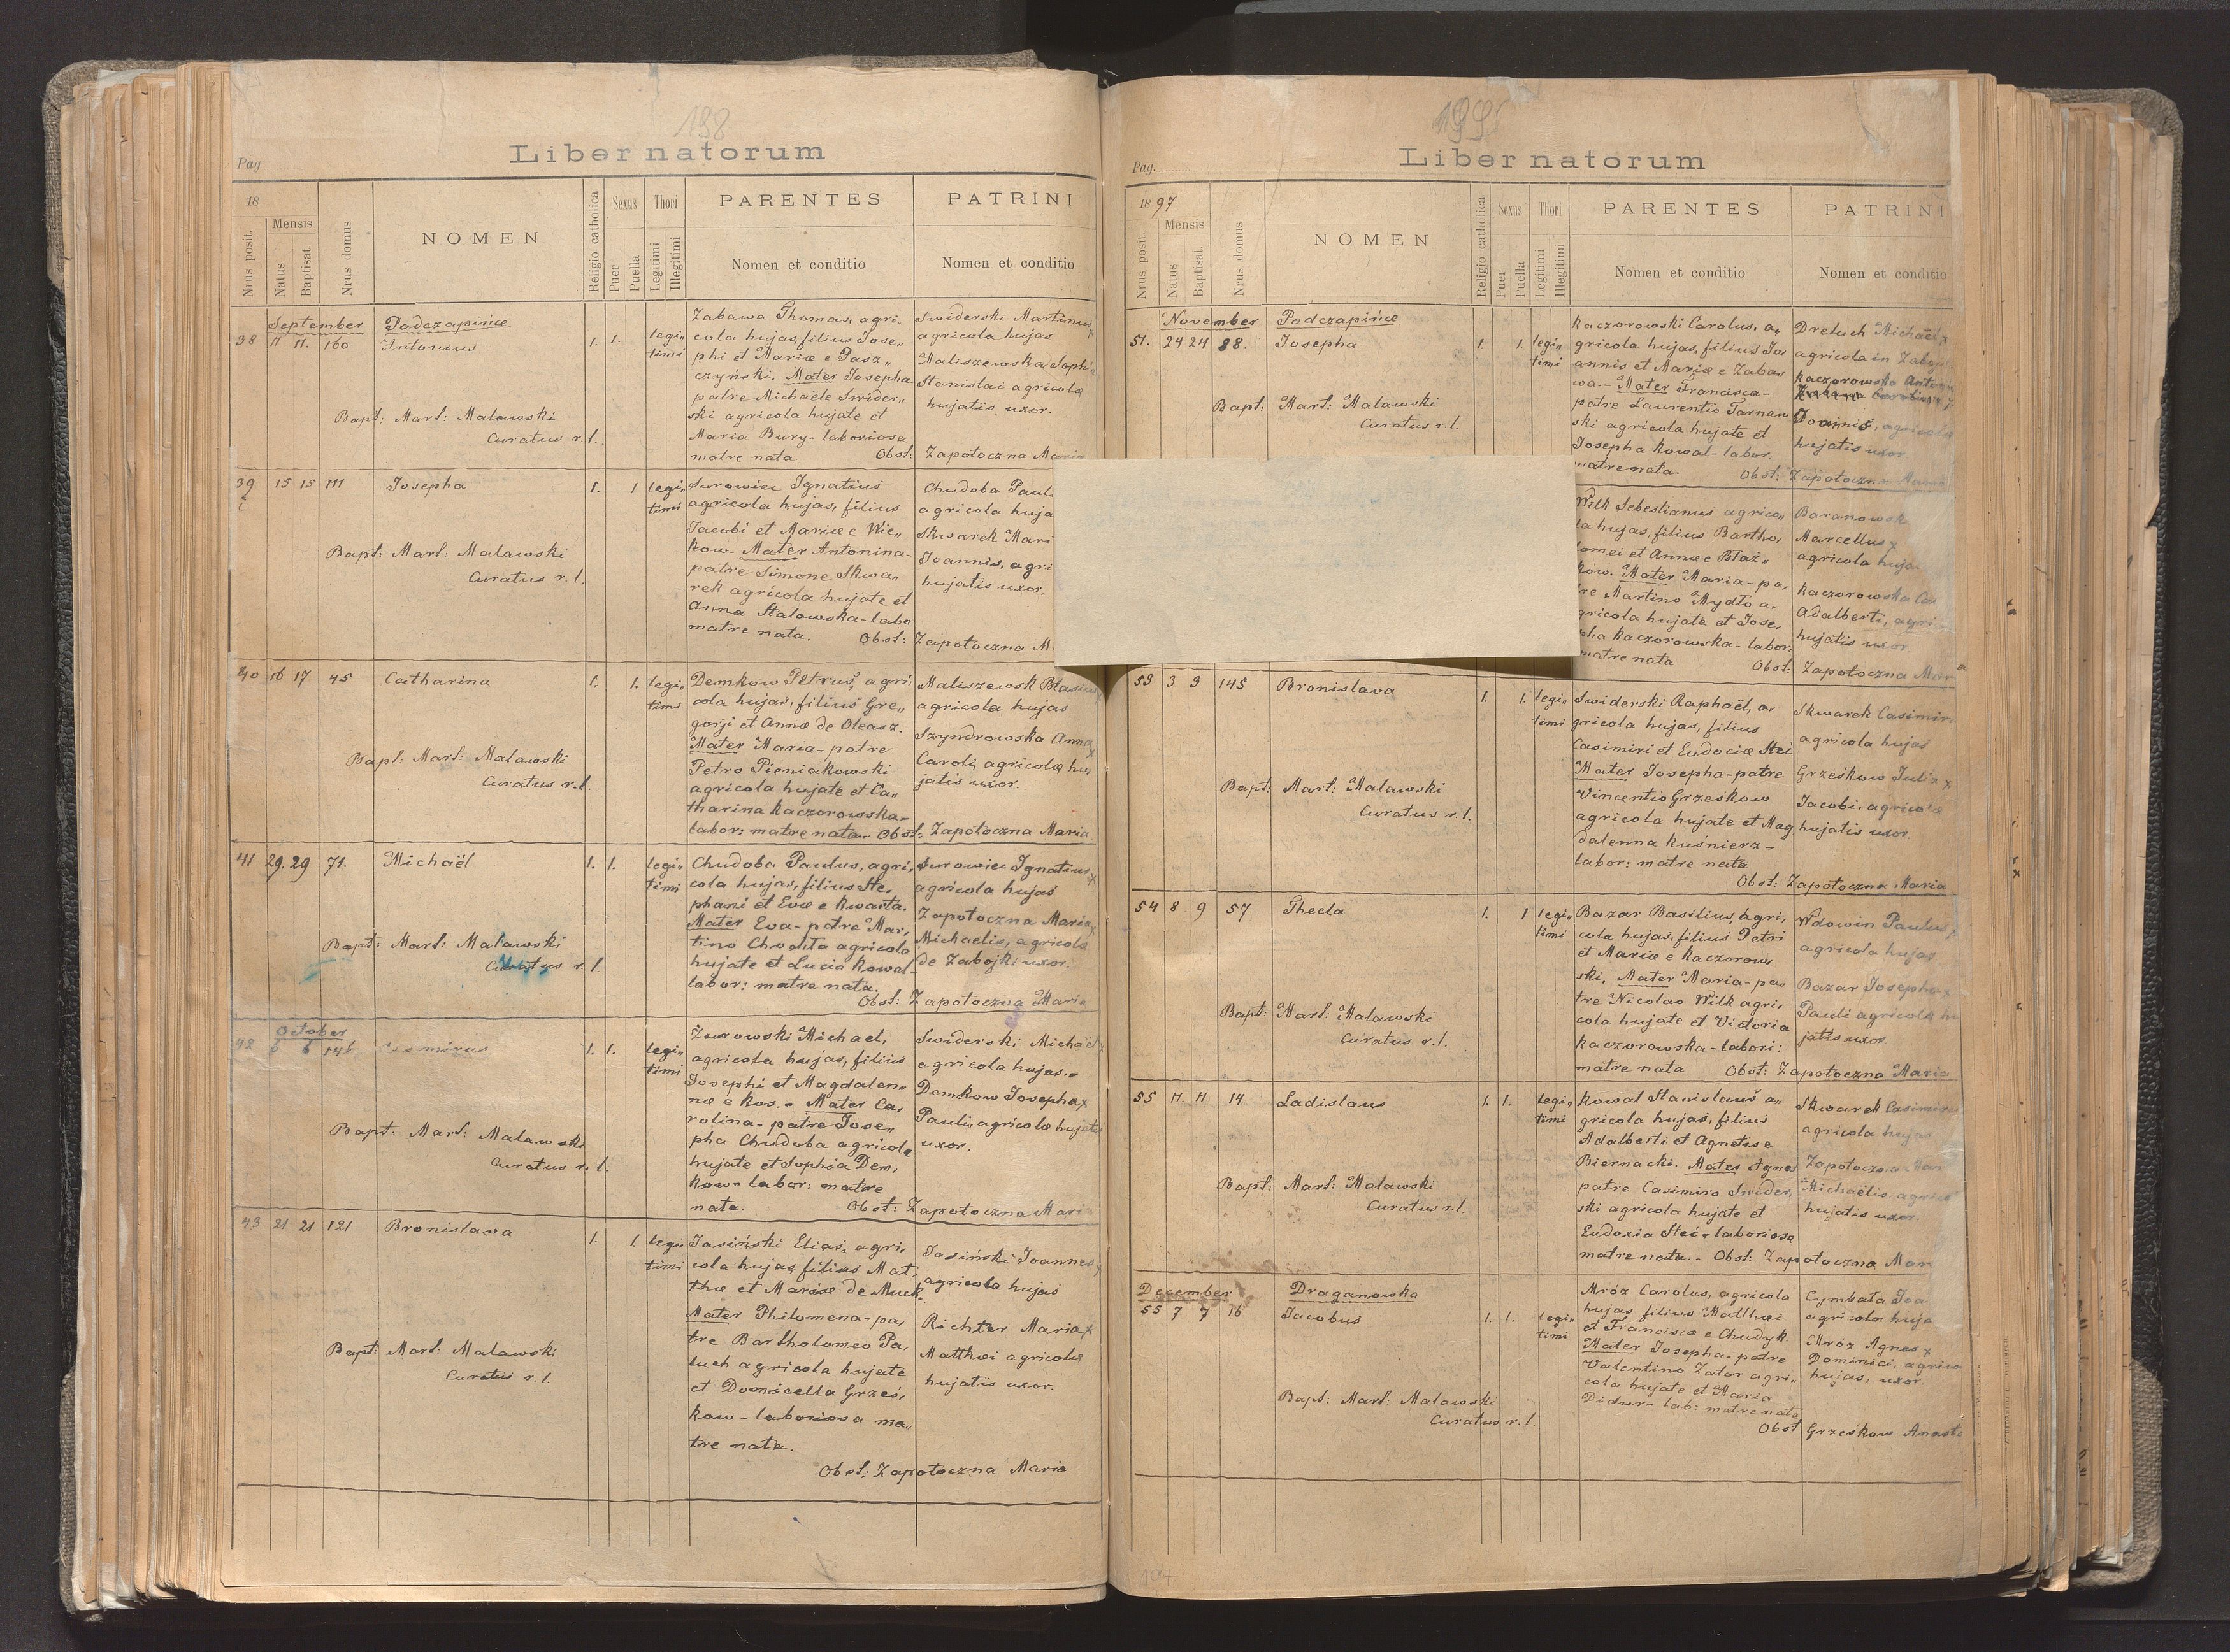 198
Liber natorum
Pag
18
Nrus posit.
Mensis
Natus
Baptisat.
Nrus domus
NOMEN
Religio catholica
Sexus
Puer
Puella
Thori
Legitimi
Illegitimi
PARENTES
Nomen et conditio
PATRINI
Nomen et conditio
September Podczapińce
38 11 11. 160 Antonius 1. 1. legi„
timi
Bapt: Mart: Malawski
Curatus r. l.
Zabawa Thomas, agri„
cola hujas, filius Jose„
phi et Mariæ e Pasz„
czyński. Mater Josepha
patre Michaële Swider„
ski agricola hujate et
Maria Bury - laboriosa
matre nata Obst:
Swiderski Martinus x
agricola hujas
Maliszewska Soph
Stanislai agricolæ
hujatis uxor.
Zapotoczna Maria
39 15 15 111 Josepha 1. 1 legi„
timi
Bapt: Mart: Malawski
Curatus r. l.
Surowiec Ignatius
agricola hujas, filius
Jacobi et Mariæ e Wie„
kow. Mater Antonina -
patre Simone Skwa„
rek agricola hujate et
Anna Stalowska - labo
matre nata. Obst:
Chudoba Paul
agricola huja
Skwarek Mari
Joannis, agri
hujatis uxor.
Zapotoczna M
40 16 17 45 Catharina 1. 1. legi„
timi
Bapt: Mart: Malawski
Curatus r. l.
Demkow Petrus, agri
cola hujas, filius Gre„
gorji et Annæ de Oleasz.
Mater Maria - patre
Petro Pieniakowski
agricola hujate et Ca„
tharina Kaczorowska -
labor: matre nata - Obst:
Maliszewsk Blasius
agricola hujas
Szyndrowska Anna x
Caroli, agricolæ hu
jatis uxor.
Zapotoczna Maria
41 29. 29 71. Michaël 1. 1. legi„
timi
Bapt: Mart: Malawski
Curatus r. l.
Chudoba Paulus, agri„
cola hujas, filius Ste„
phani et Evæ e Kwarta.
Mater Eva - patre Mar„
tino Chodta agricola
hujate et Lucia Kowal -
labor: matre nata.
Obst:
Surowiec Ignatius x
agricola hujas
Zapotoczna Maria x
Michaelis, agricolæ
de Zabojki uxor.
Zapotoczna Maria
October
42 6 6 146 Casimirus 1. 1. legi„
timi
Bapt: Mart: Malawski
Curatus r. l.
Żurowski Michael,
agricola hujas, filius
Josephi et Magdalen„
næ e Kos. - Mater Ca„
rolina - patre Jose„
pha Chudoba agricola
hujate et Sophia Dem„
kow - labor: matre
nata. Obst:
Swiderski Michaël x
agricola hujas. „
Demkow Josepha x
Pauli, agricolæ hujatis
uxor.
Zapotoczna Maria
43 21 21 121 Bronislava 1. 1. legi„
timi
Bapt: Mart: Malawski
Curatus r. l.
Jasiński Elias, agri„
cola hujas, filius Mat„
thæ et Mariæ de Muck.
Mater Philomena - pa„
tre Bartholomeo Pa„
luch agricola hujate
et Domicella Grześ„
kow - laboriosa ma„
tre nata.
Obst: Zapotoczna Maria
Jasiński Joannes x
agricola hujas
Richter Maria x
Matthæi agricolæ
hujatis uxor.
199
Liber natorum
Pag.
1897
Nrus posit.
Mensis
Natus
Baptisat.
Nrus domus
NOMEN
Religio catholica
Sexus
Puer
Puella
Thori
Legitimi
Illegitimi
PARENTES
Nomen et conditio
PATRINI
Nomen et conditio
November Podczapińce
51. 24 24 88. Josepha 1. 1. legi„
timi
Bapt: Mart: Malawski
Curatus r. l.
Kaczorowski Carolus, a„
gricola hujas, filius Jo„
annis et Mariæ e Zaba„
wa. - Mater Francisca -
patre Laurentio Tarnaw
ski agricola hujate et
Josepha Kowal - labor.
matre nata. Obst:
Dretuch Michaël x
agricola in Zaboj
Kaczorowska Anton
Joannis, agricolæ
hujatis uxor
Zapotoczna Maria
Wilk Sebestianus agrico„
la hujas, filius Bartho„
lomei et Annæ e Błaż„
ków. Mater Maria - pa„
tre Martino Mydło a„
gricola hujate et Jose„
pha Kaczorowska - labor:
matre nata Obst:
Baranowsk
Marcellus x
agricola huja
Kaczorowska Ca
Adalberti, agri
hujatis uxor
Zapotoczna Mar
53 3 3 145 Bronislava 1. 1. legi„
timi
Bapt: Mart: Malawski
Curatus r. l.
Swiderski Raphaël, a„
gricola hujas, filius
Casimiri et Eudociæ Stei
Mater Josepha - patre
Vincentio Grześkow
agricola hujate et Mag
dalenna Kuśnierz -
labor: matre nata
Obst: Zapotoczna Maria
Skwarek Casimir
agricola hujas
Grześkow Julia x
Jacobi, agricolæ
hujatis uxor.
54 8 9 57 Thecla 1. 1 legi„
timi
Bapt: Mart: Malawski
Curatus r. l.
Bazar Basilius, agri„
cola hujas, filius Petri
et Mariæ e Kaczorow„
ski. Mater Maria - pa„
tre Nicolao Wilk agri„
cola hujate et Victoria
Kaczorowska - labori:
matre nata Obst: Zapotoczna Maria
Wdowin Paulus x
agricola hujas
Bazar Josepha x
Pauli agricolæ hu
jatis uxor.
55 11. 11 14 Ladislaus 1. 1. legi„
timi
Bapt: Mart: Malawski
Curatus r. l.
Kowal Stanislaus a„
gricola hujas, filius
Adalberti et Agnetis e
Biernacki. Mater Agnes
patre Casimiro Swider„
ski agricola hujate et
Eudoxia Stei - laboriosa
matre nata. - Obst: Zapotoczna Mar
Skwarek Casimirus
agricola hujas
Zapotoczna Mar
Michaëlis, agric
hujatis uxor.
December Draganowska
55 7 7 16 Jacobus 1. 1. legi„
timi
Bapt: Mart: Malawski
Curatus r. l.
Mróz Carolus, agricola
hujas filius Matthæi
et Franciscæ e Chudyk.
Mater Josepha - patre
Valentino Zator agri„
cola hujate et Maria
Pidur - lab: matre nata
Obst
Cymbała Joa
agricola huja
Mróz Agnes x
Dominici, agrico
hujas, uxor.
Grześkow Anast